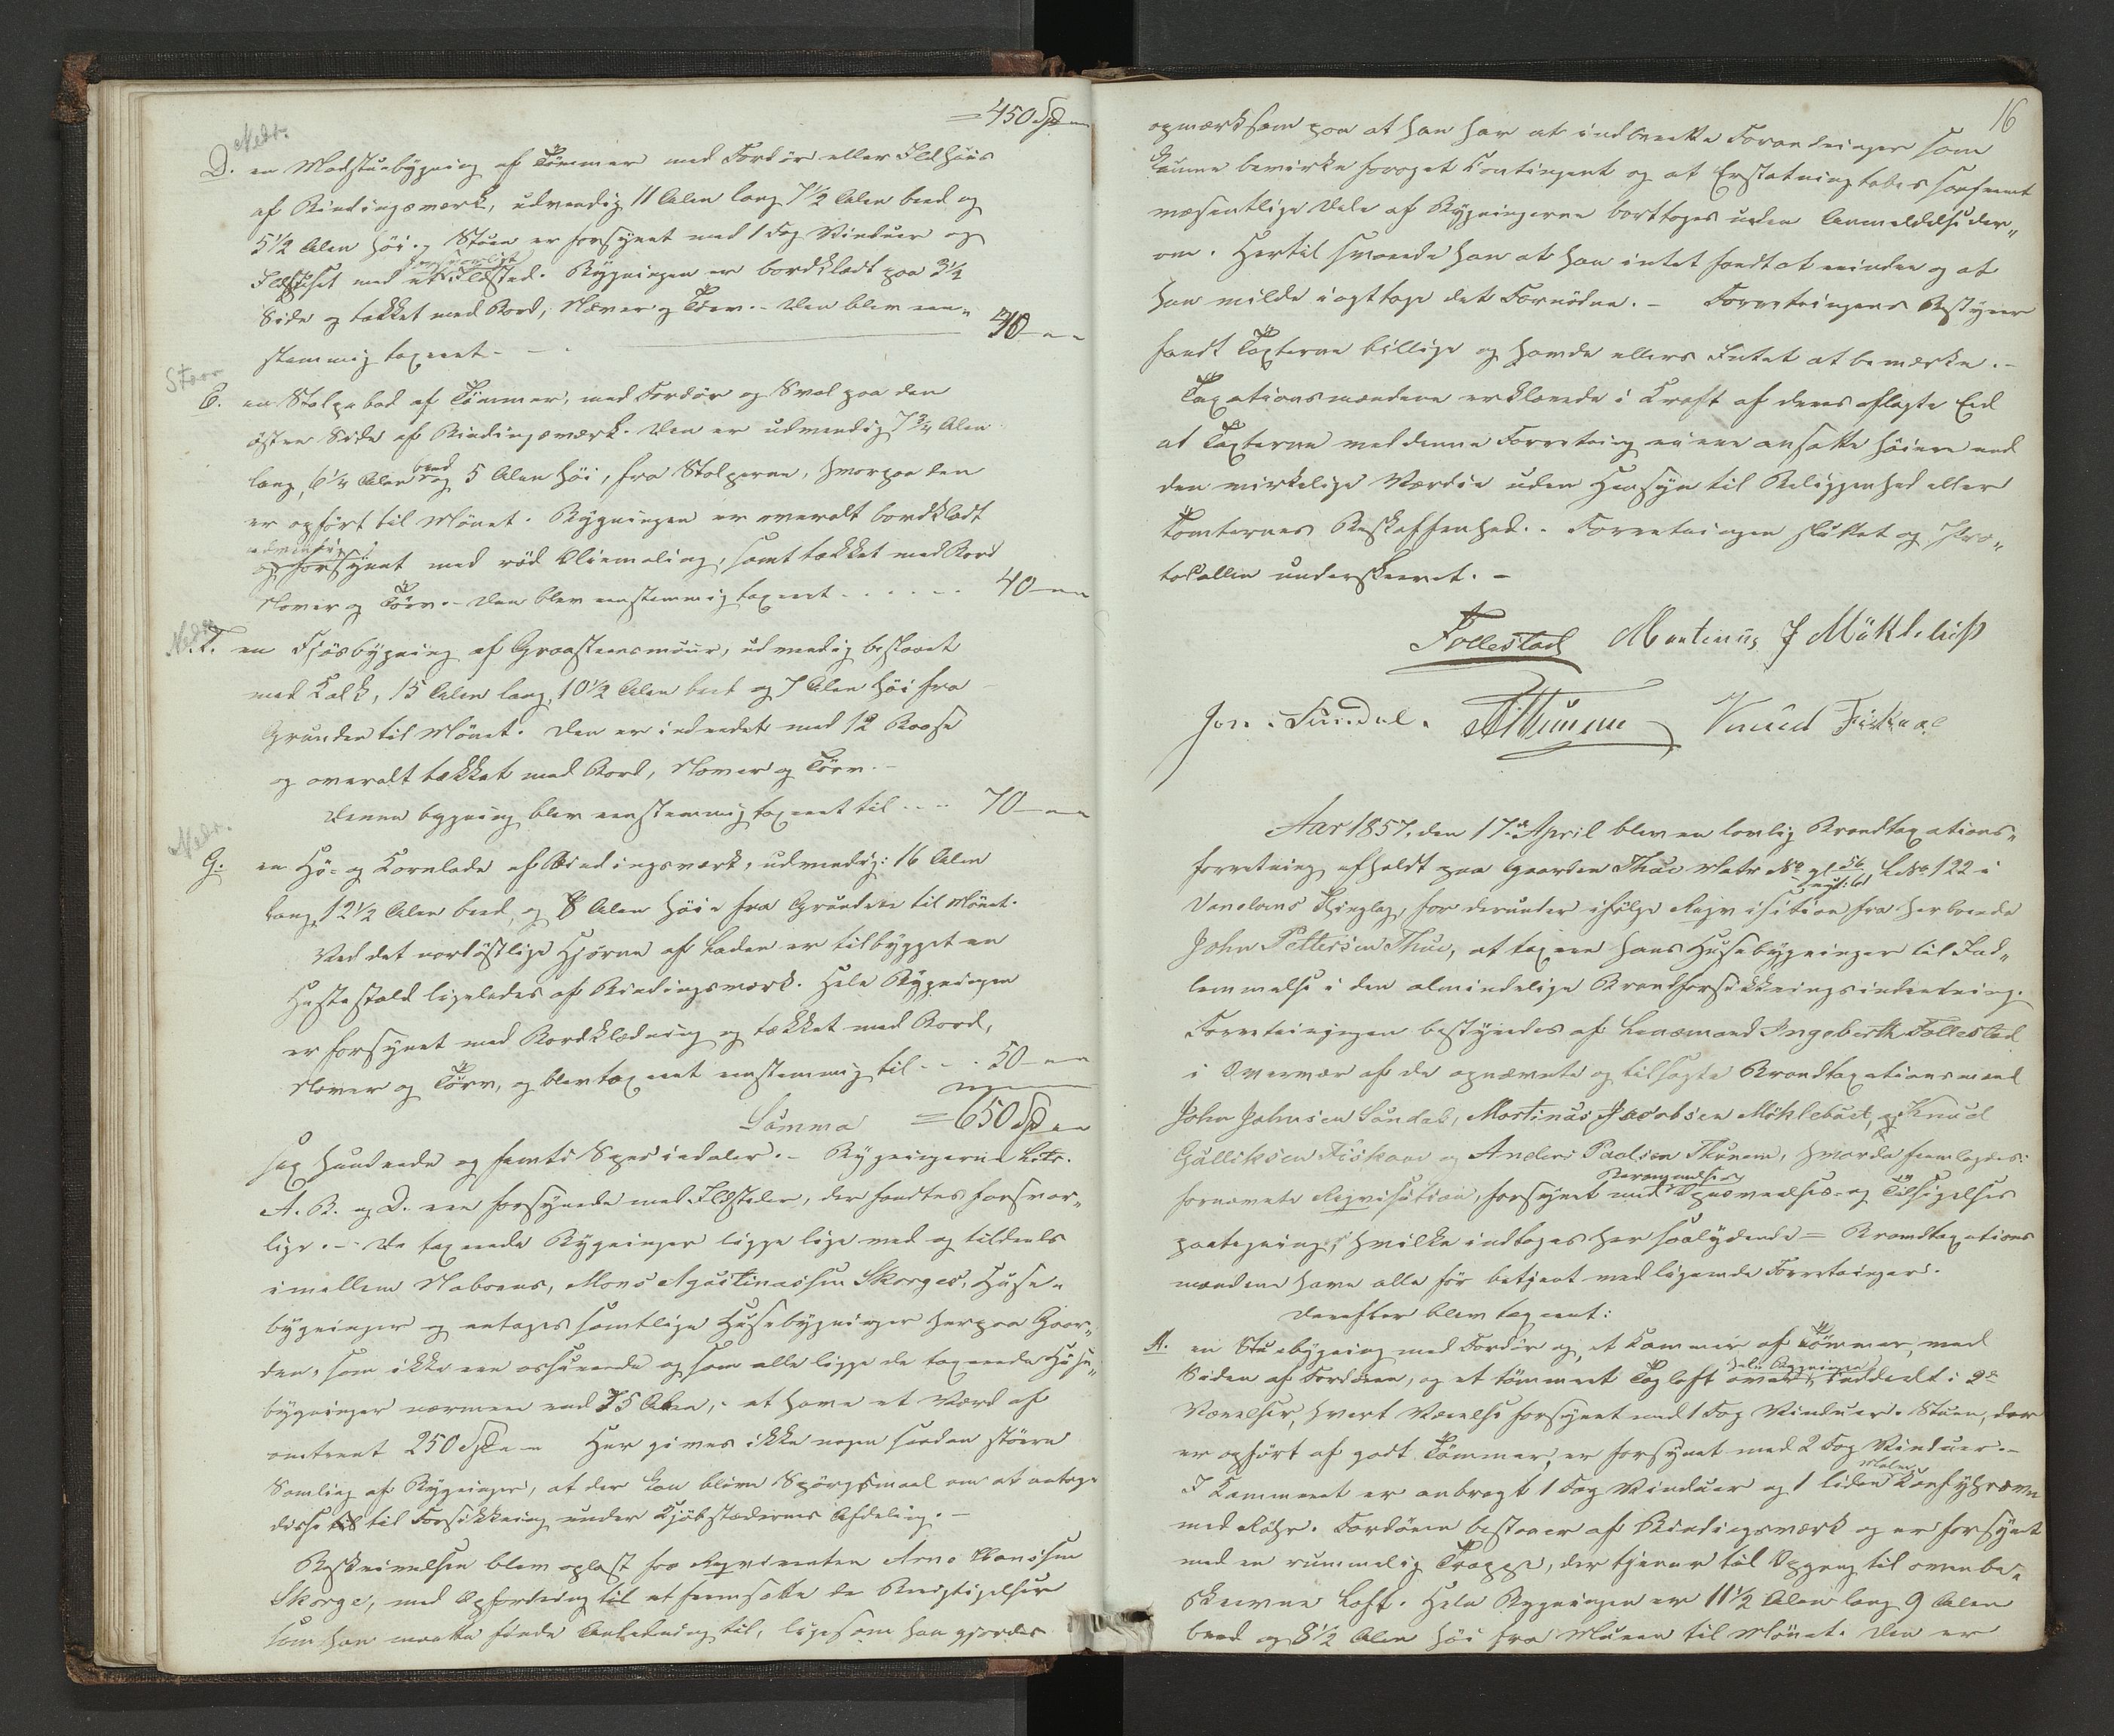 = 450 Spd
Nedr.
D. en Madstuebygning af Tømmer med Fordør eller Ildhuus
af Bindingsverk, udvendig 11 Alen lang 7 1/2 Alen bred og
5 1/2 Alen høi. Stuen er forsynet med 1 Fag Vinduer og
forsvarligt
Ildhuset med et Ildsted. Bygningen er bordklædt paa 3 1/2
Side og tækket med Bord, Næver og Tørv. - Den blev een-
stemmig taxeret - 40 - "
Staar
E. en Stolpebod af Tømmer, med Fordør og Sval paa den
østre Side af Bindingsværk. Den er udvendig 7 3/4 Alen
bred
lang, 6 1/4 Alen og 5 Alen høi, fra Stolperne, hvorpaa den
er opført til Mønet. Bygningen er overalt bordklædt
udvendig
og forsynet med rød Oliemaling, samt tækket med Bord
Næver og Tørv. - Den blev eenstemmig taxeret - - - - - - 40 - "
Nedr.
F. en Fjøsbygning af Graasteensmuur, udvendig bestaaet
med Kalk, 15 Alen lang, 10 1/2 Alen bred og 7 Alen høi fra
Grunden til Mønet. Den er indredet med 12 Baase
og overalt tækket med Bord, Næver og Tørv. -
Denne bygning blev eenstemmig taxeret til - - - 70 - "
Nedr.
G. en Hø- og Kornlade af Bindingsværk, udvendig: 16 Alen
lang, 12 1/2 Alen bred, og 8 Alen høie fra Grunden til Mønet.
Ved det nordøstlige Hjørne af Laden er tilbygget en
Hestestald ligeledes af Bindingsværk. Hele Bygningen
er forsynet med Bordklædning og tækket med Bord,
Næver og Tørv, og blev taxeret eenstemmig til - - - 50 - "
Summa = 650 Spd
sex hundrede og femti Speciedaler. - Bygningerne Litr.
A. B. og D. ere forsynede med Ildsteder, der fandtes forsvar-
lige. - De taxerede Bygninger ligge lige ved og tildeels
imellem Naboens, Mons Agustinussen Skorges, Huse-
bygninger og antages samtlige Husebygninger herpaa Gaar-
den, som ikke ere assurerede og som alle ligge de taxerede Huse-
bygninger nærmere end 75 Alen, at have et Værd af
omtrent 250 Spd. - Her gives ikke nogen saadan større
Samling af Bygninger, at der kan blive Spørgsmaal om at antage
disse til Forsikkring under Kjøbstædernes Afdeling. -
Beskrivelsen blev oplæst for Reqvirenten Arne Hansen
Skorge, med Opfordring til at fremsætte de Berigtigelser
som han maatte finde Anledning til, ligesom han gjordes
16
opmærksom paa at han har at indberette Forandringer som
kunne bevirke forøget Contingent og at Erstatning tabes saafremt
væsentlige Dele af Bygningerne borttages uden Anmeldelse der-
om. Hertil svarede han at han intet fandt at erindre og at
han vilde iagttage det Fornødne. - Forretningens Bestyrer
fandt Taxterne billige og havde ellers Intet at bemærke. -
Taxationsmændene erklærede i Kraft af deres aflagte Eed
at Taxterne ved denne Forretning ei ere ansatte høiere end
den virkelige Værdie uden Hensyn til Beliggenhed eller
Tomternes Beskaffenhed. - Forretningen sluttet og Pro-
tokollen underskrevet. -
Follestad Martinus J Möklebust
Jon. J. Sundal. AThunem Knud Fiskaae
Aar 1857, den 17de April blev en lovlig Brandtaxations-
forretning afholdt paa Gaarden Thue Matr No gl 56 / nyt: 61 L No 122 i
Vanelvens Thinglag, for derunder ifølge Reqvisition fra Herboende
John Pettersen Thue, at taxere hans Husebygninger til Ind-
lemmelse i den almindelige Brandforsikkringsindretning.
Forretningen bestyredes af Lensmand Ingebreth Follestad
i Overvær af de opnævnte og tilsagte Brandtaxationsmænd
John Johnsen Sundal, Martinus Jacobsen Möklebust, og Knud
Gulliksen Fiskaae og Anders Paulsen Thunem, hvorda fremlagdes:
Berammelses-
fornævnte Reqvisition, forsynet med Opnævnelses- og Tilsigelses
paategning, hvilke indtages her saalydende = Brandtaxations
mændene have alle før betjent ved lignende Forretninger.
Derefter blev taxeret:
A. en Stuebygning med Fordør og et Kammer af Tømmer, ved
hele Bygningen
Siden af Fordøren, og et tømmret Tagloft over inddeelt i 2de
Værelser, hvert Værelse forsynet med 1 Fag Vinduer. Stuen, der
er opført af godt Tømmer, er forsynet med 2 Fag Vinduer. -
I Kammeret er anbragt 1 Fag Vinduer og 1 liden Kakkelovn
med Röhr. Fordøren bestaaer af Bindingsværk og er forsynet
med en rummelig Trappe, der tjener til Opgang til ovenbe-
skrevne Loft. Hele Bygningen er 11 1/2 Alen lang 9 Alen
bred og 8 1/2 Alen høi fra Muren til Mønet. Den er